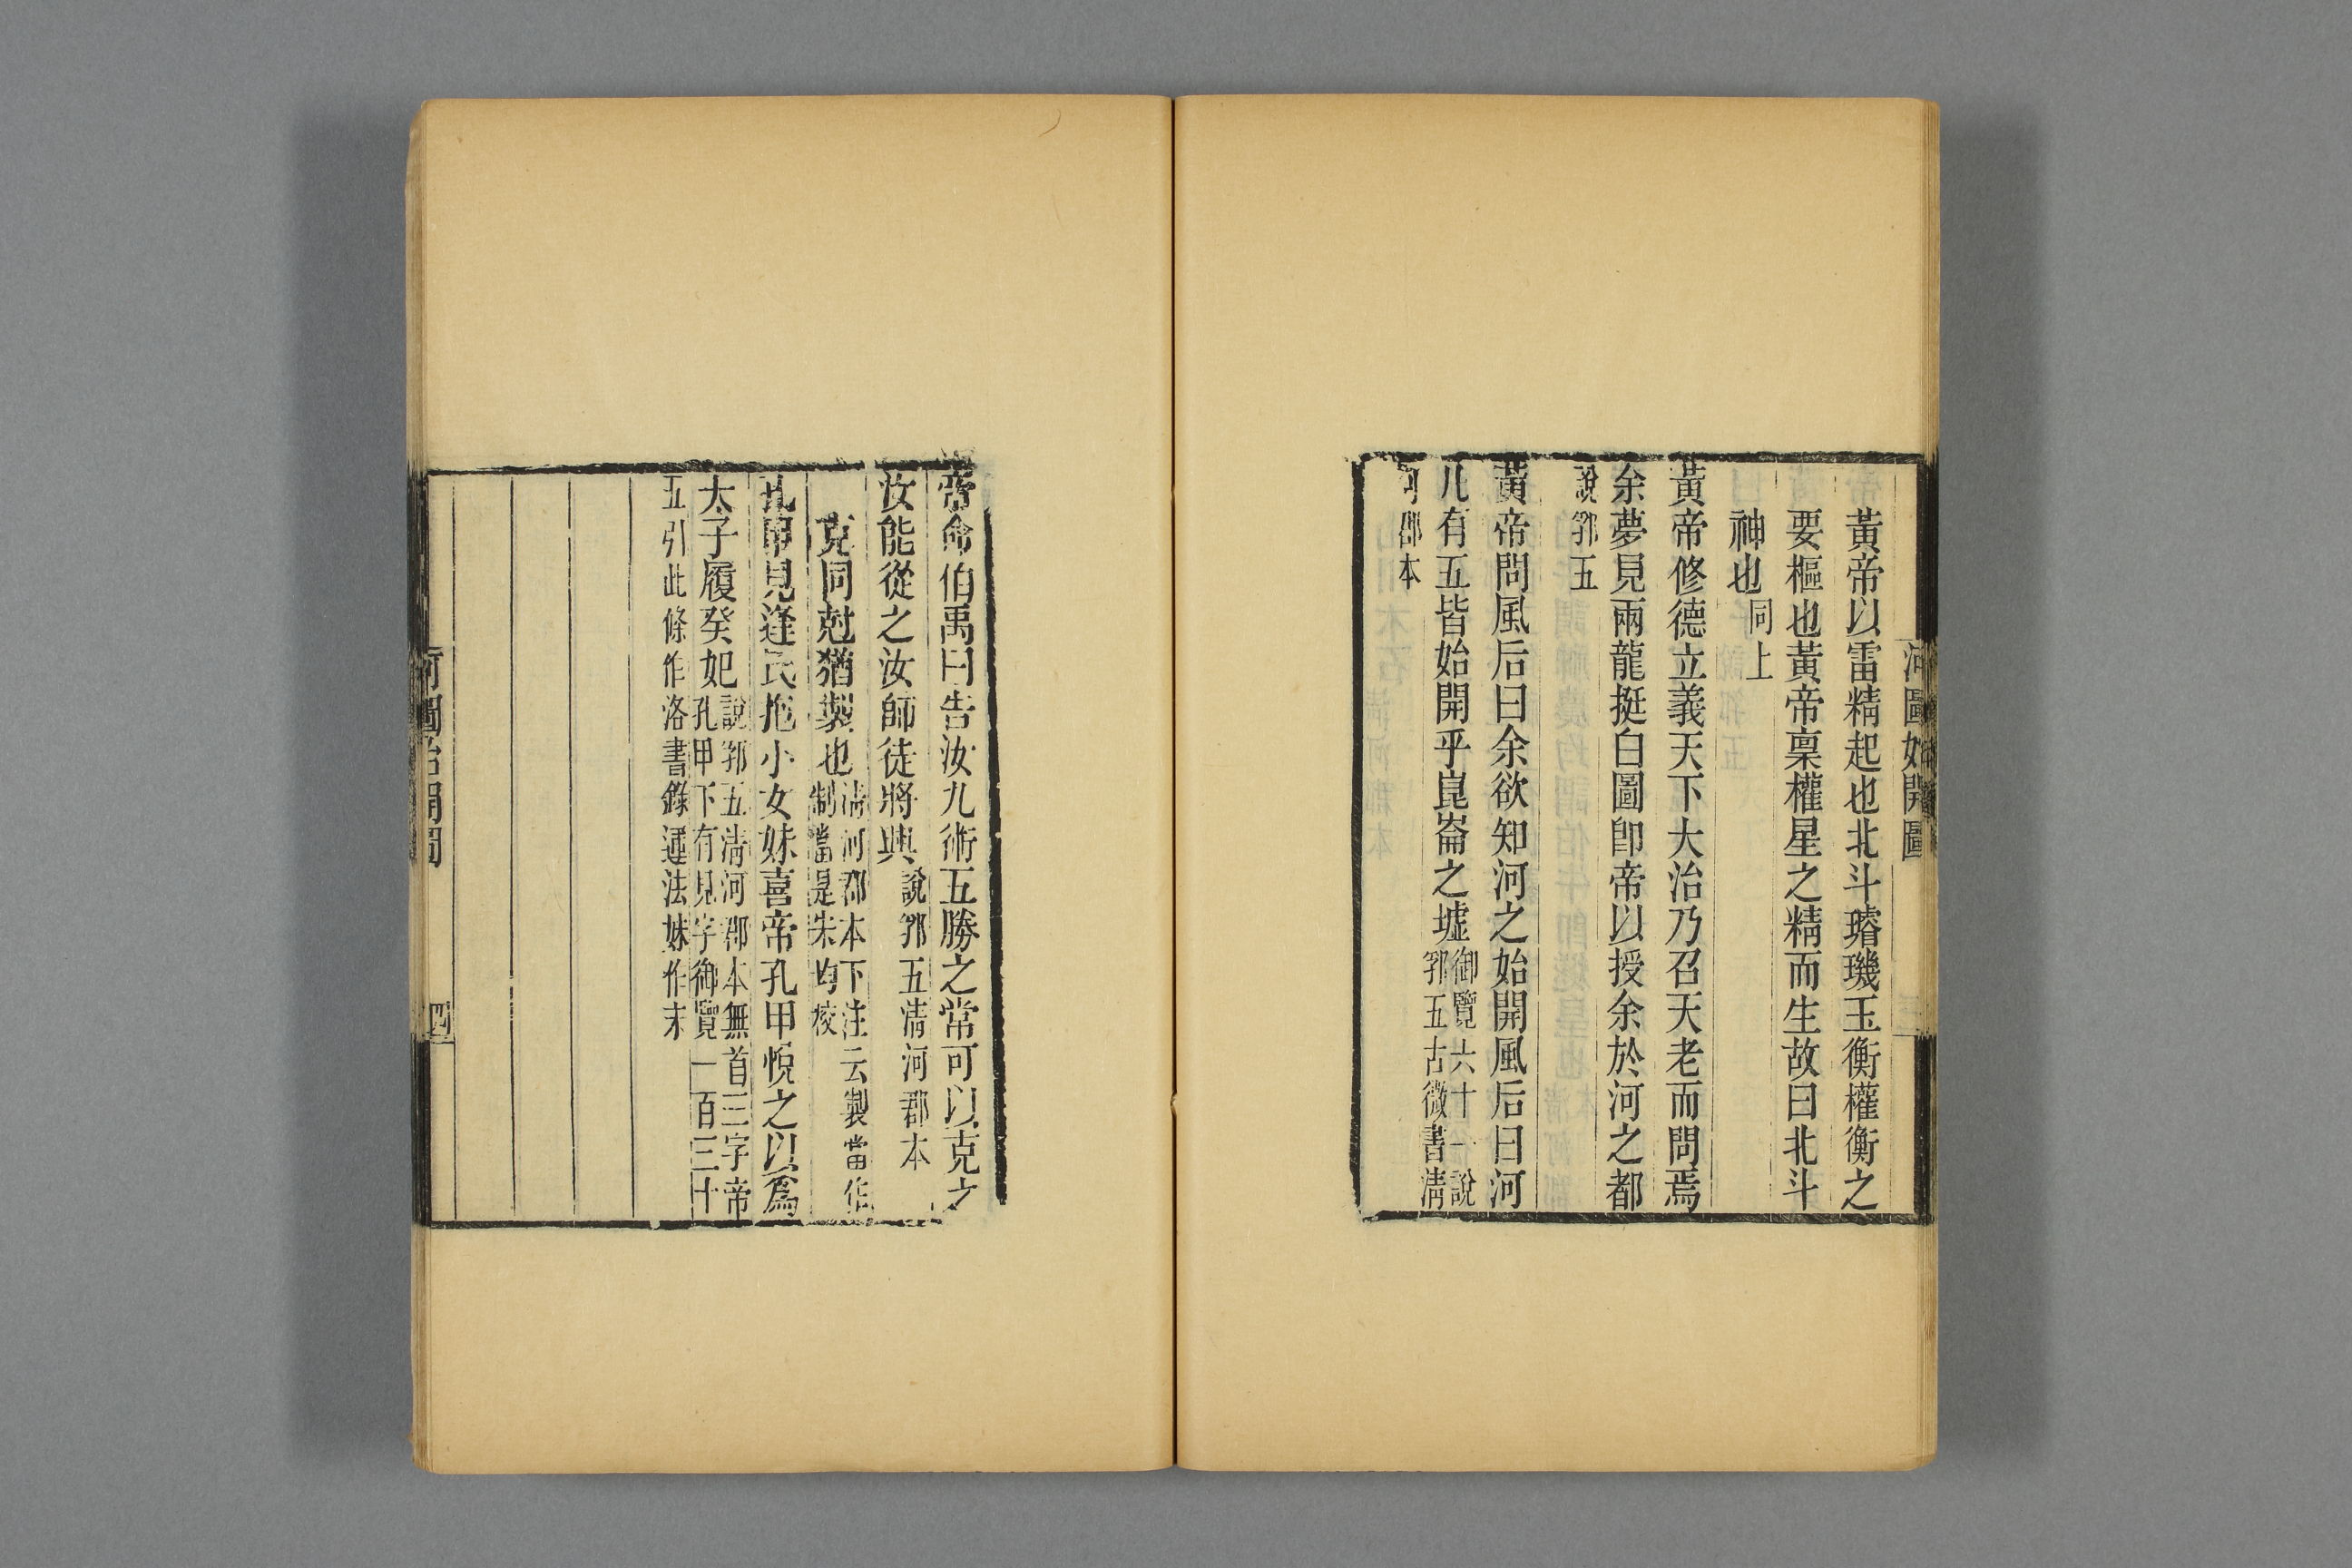 河圖始開圖
黃帝以雷精起也北斗璿璣玉衡權衡之
要樞也黃帝稟權星之精而生故曰北斗
神也同上
黃帝修德立義天下大治乃召天老而問焉
余夢見兩龍挺白圖卽帝以授余於河之都
說郛五
黃帝問風后曰余欲知河之始開風后曰河
凡有五皆始開乎崑崙之墟御覽六十一說
郛五古微書淸
河郡本
帝命伯禹曰告汝九術五勝之常可以克之
汝能從之汝師徒將興說郛五淸河郡本
克同尅猶製也淸河郡本下注云製當作
制當是朱均校
孔甲見逢氏抱小女妹喜帝孔甲悅之以爲
太子履癸妃說郛五淸河郡本無首三字帝
孔甲下有見字御覽一百三十
五引此條作洛書錄運法妹作末
河圖始開圖
四